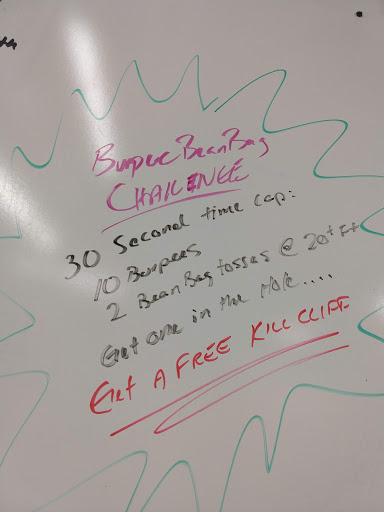 Burpee Bean Bag
CHALLENGE
30 Second time cap:
10 Burpees
2 Bean Bag tosses @ 20+ Ft
Get one in the Hole....
Get A FREE KILL CLIFF